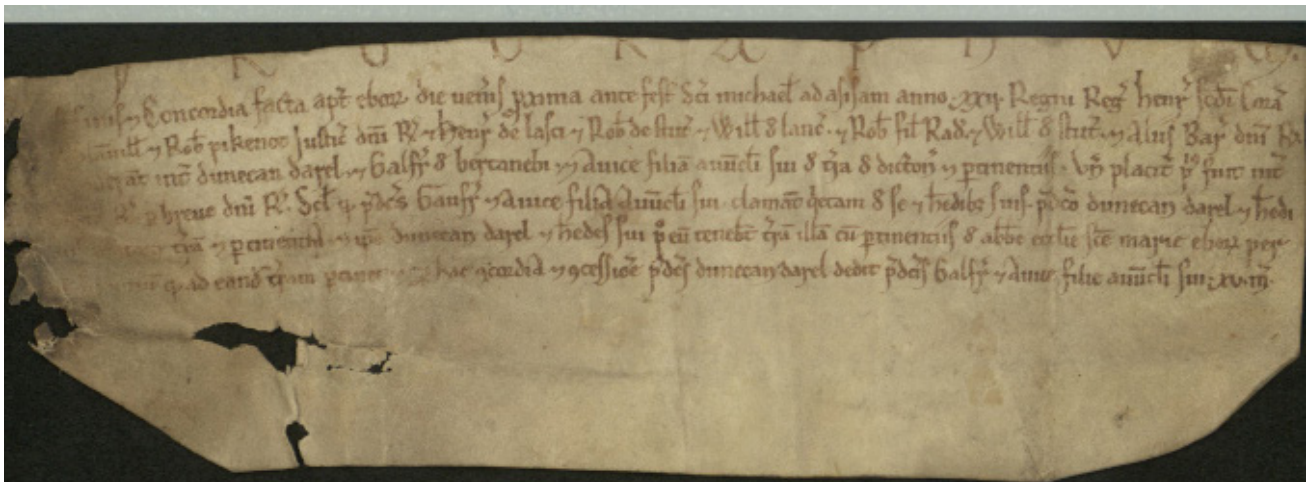 C Y R O G R A P H V M
finis ⁊ Concordia facta apt̄ ebor̄ die uen̄is p̄xima ante fest̄ Sc̄i michael̄ ad asisam anno .xxij. Regni Reḡ henr̄ sc̄di Corā
⁊ Rob̄ pikenot Justic̄ dn̄i R̄. ⁊ henr̄ de lasci ⁊ Rob̄ de stut̄ ⁊ Will̄ d̄ lanc̄. ⁊ Rob̄ fil̄ Rad̄. ⁊ Will̄ d̄ stut̄. ⁊ Alijs Bar̄ dn̄i R̄.
int̄ dunecan darel ⁊ Galfr̄ d̄ bertanebi ⁊ Auice filiā auūcl̄i sui d̄ t̄ra d̄ dicton̄ ⁊ p̄tinentijs. Vn̄ placit̄ fuit int̄
R̄. p̄ breue dn̄i R̄. Scl̄ q̄ p̄dc̄s Gaufr̄ ⁊ Auice filia Auūcl̄i sui clamāt q̄etam d̄ se ⁊ h̄edibȝ suis p̄dc̄o dunecan darel ⁊ h̄edi
t̄rā ⁊ p̄tinentijs ⁊ ip̄e dunecan darel ⁊ h̄edes sui p̄ eū teneb̄t t̄rā illā cū p̄tinentijs d̄ abb̄e eccl̄ie sc̄e marie ebor̄ per
q̄ ad eand̄ t̄ram hac ꝯcordia ⁊ ꝯcessiōe p̄dc̄s dunecan darel dedit p̄dc̄is Galfr̄ ⁊ Auic̄ filie auūcl̄i sui .xv. m̄.